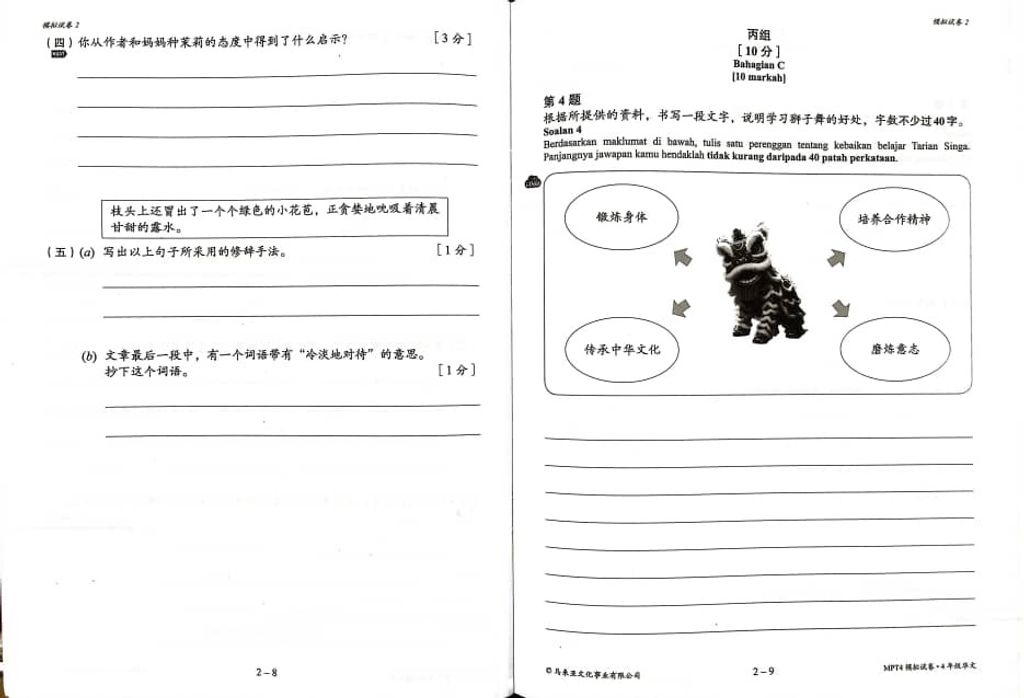 模拟试卷 2
(四) 你从作者和妈妈种茉莉的态度中得到了什么启示? [3 分]
枝头上还冒出了一个个绿色的小花苞，正贪婪地吮吸着清晨
甘甜的露水。
(五) (a) 写出以上句子所采用的修辞手法。 [1 分]
(b) 文章最后一段中，有一个词语带有“冷淡地对待”的意思。
抄下这个词语。 [1 分]
2－8
模拟试卷 2
丙组
[10 分]
Bahagian C
[10 markah]
第 4 题
根据所提供的资料，书写一段文字，说明学习狮子舞的好处，字数不少过40字。
Soalan 4
Berdasarkan maklumat di bawah, tulis satu perenggan tentang kebaikan belajar Tarian Singa.
Panjangnya jawapan kamu hendaklah tidak kurang daripada 40 patah perkataan.
锻炼身体
培养合作精神
传承中华文化
磨炼意志
© 马来亚文化事业有限公司
2－9
MPT4 模拟试卷•4 年级华文